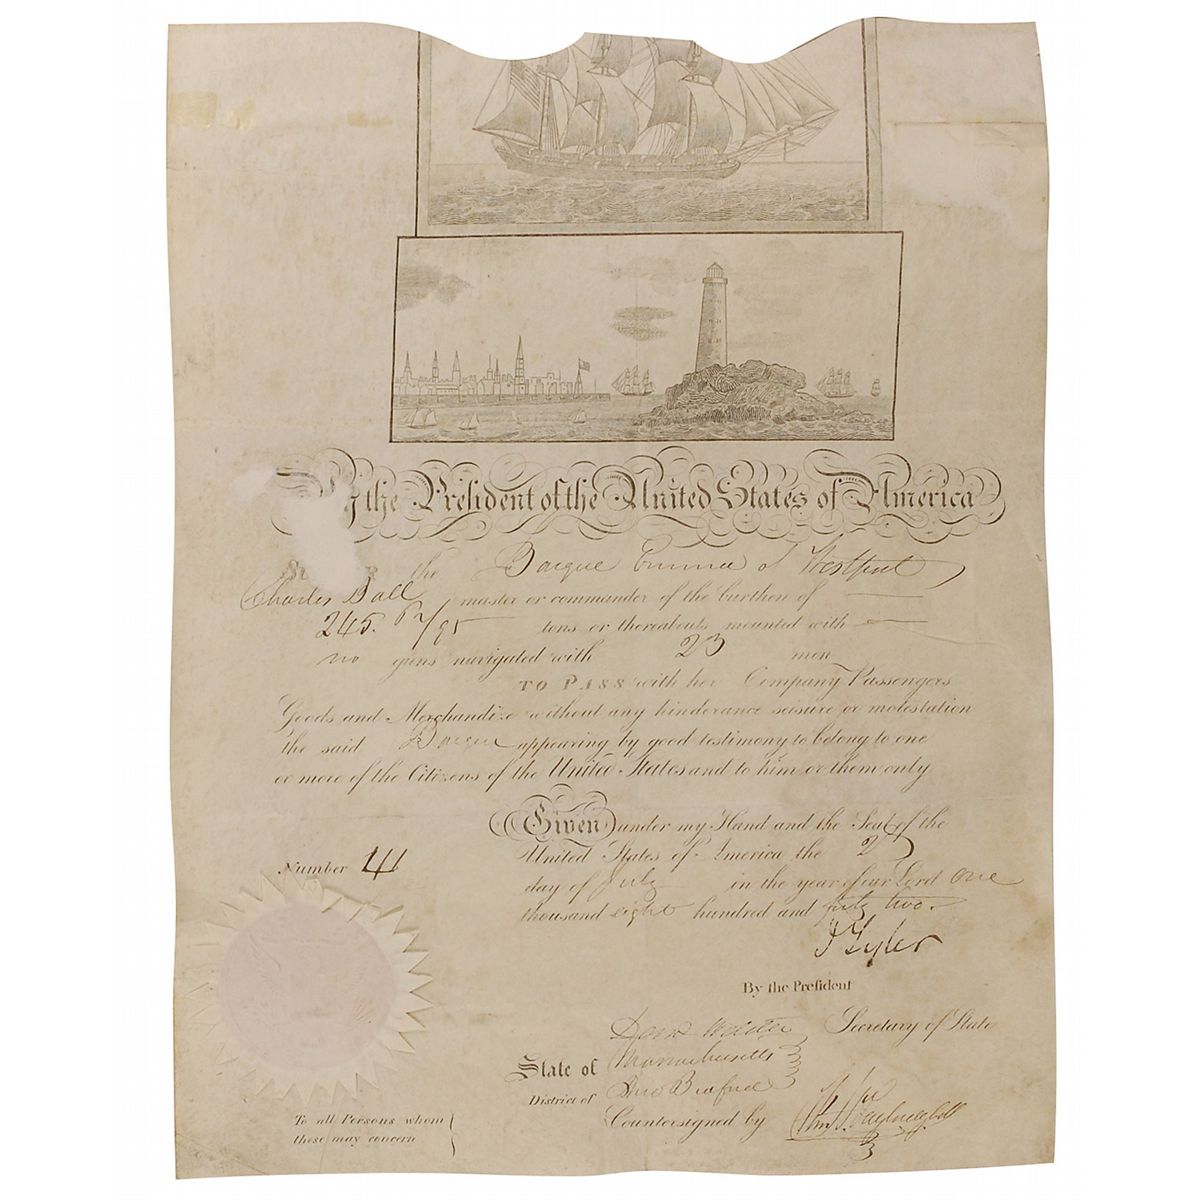 By the President of the United States of America
the Barque Emma of Westport
Charles Ball master or commander of the burthen of
245. 12/95 tons or thereabouts mounted with
no guns navigated with 23 men
TO PASS with her Company Passengers
Goods and Merchandize without any hinderance seisure or molestation
the said Barque appearing by good testimony to belong to one
or more of the Citizens of the United States and to him or them only
Given under my Hand and the Seal of the
United States of America the 25
day of July in the year of our Lord one
thousand eight hundred and forty two.
Number 41
J Tyler
By the President
Secretary of State
State of Massachusetts
District of
Countersigned by
To all Persons whom
these may concern